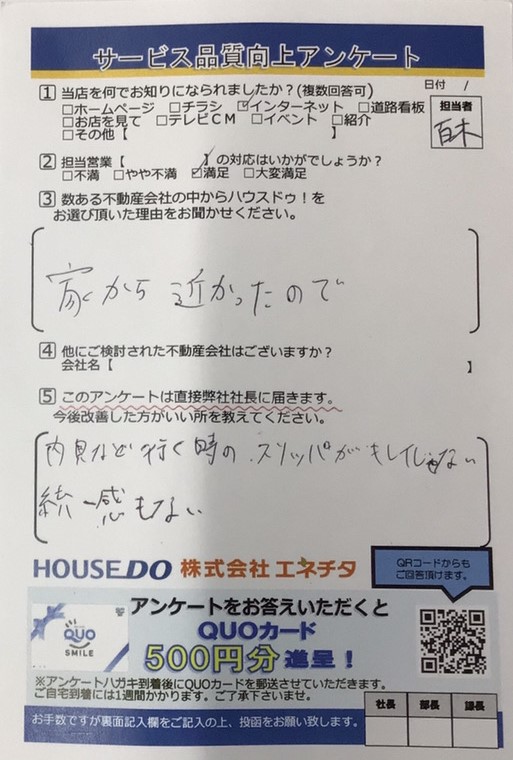 サービス品質向上アンケート
日付　/
1 当店を何でお知りになられましたか？(複数回答可)
□ホームページ □チラシ ☑インターネット □道路看板
□お店を見て □テレビCM □イベント □紹介
□その他【　】
担当者
百木
2 担当営業【　】の対応はいかがでしょうか？
□不満 □やや不満 ☑満足 □大変満足
3 数ある不動産会社の中からハウスドゥ！を
お選び頂いた理由をお聞かせください。
家から近かったので
4 他にご検討された不動産会社はございますか？
会社名【　】
5 このアンケートは直接弊社社長に届きます。
今後改善した方がいい所を教えてください。
内見など行く時のスリッパがキレイじゃない
統一感もない
HOUSEDO 株式会社エネチタ
QRコードからも
ご回答頂けます。
アンケートをお答えいただくと
QUOカード
500円分進呈！
QUO
SMILE
※アンケートハガキ到着後にQUOカードを郵送させていただきます。
ご自宅到着には1週間かかります。ご了承下さいませ。
お手数ですが裏面記入欄をご記入の上、投函をお願い致します。
社長 部長 課長